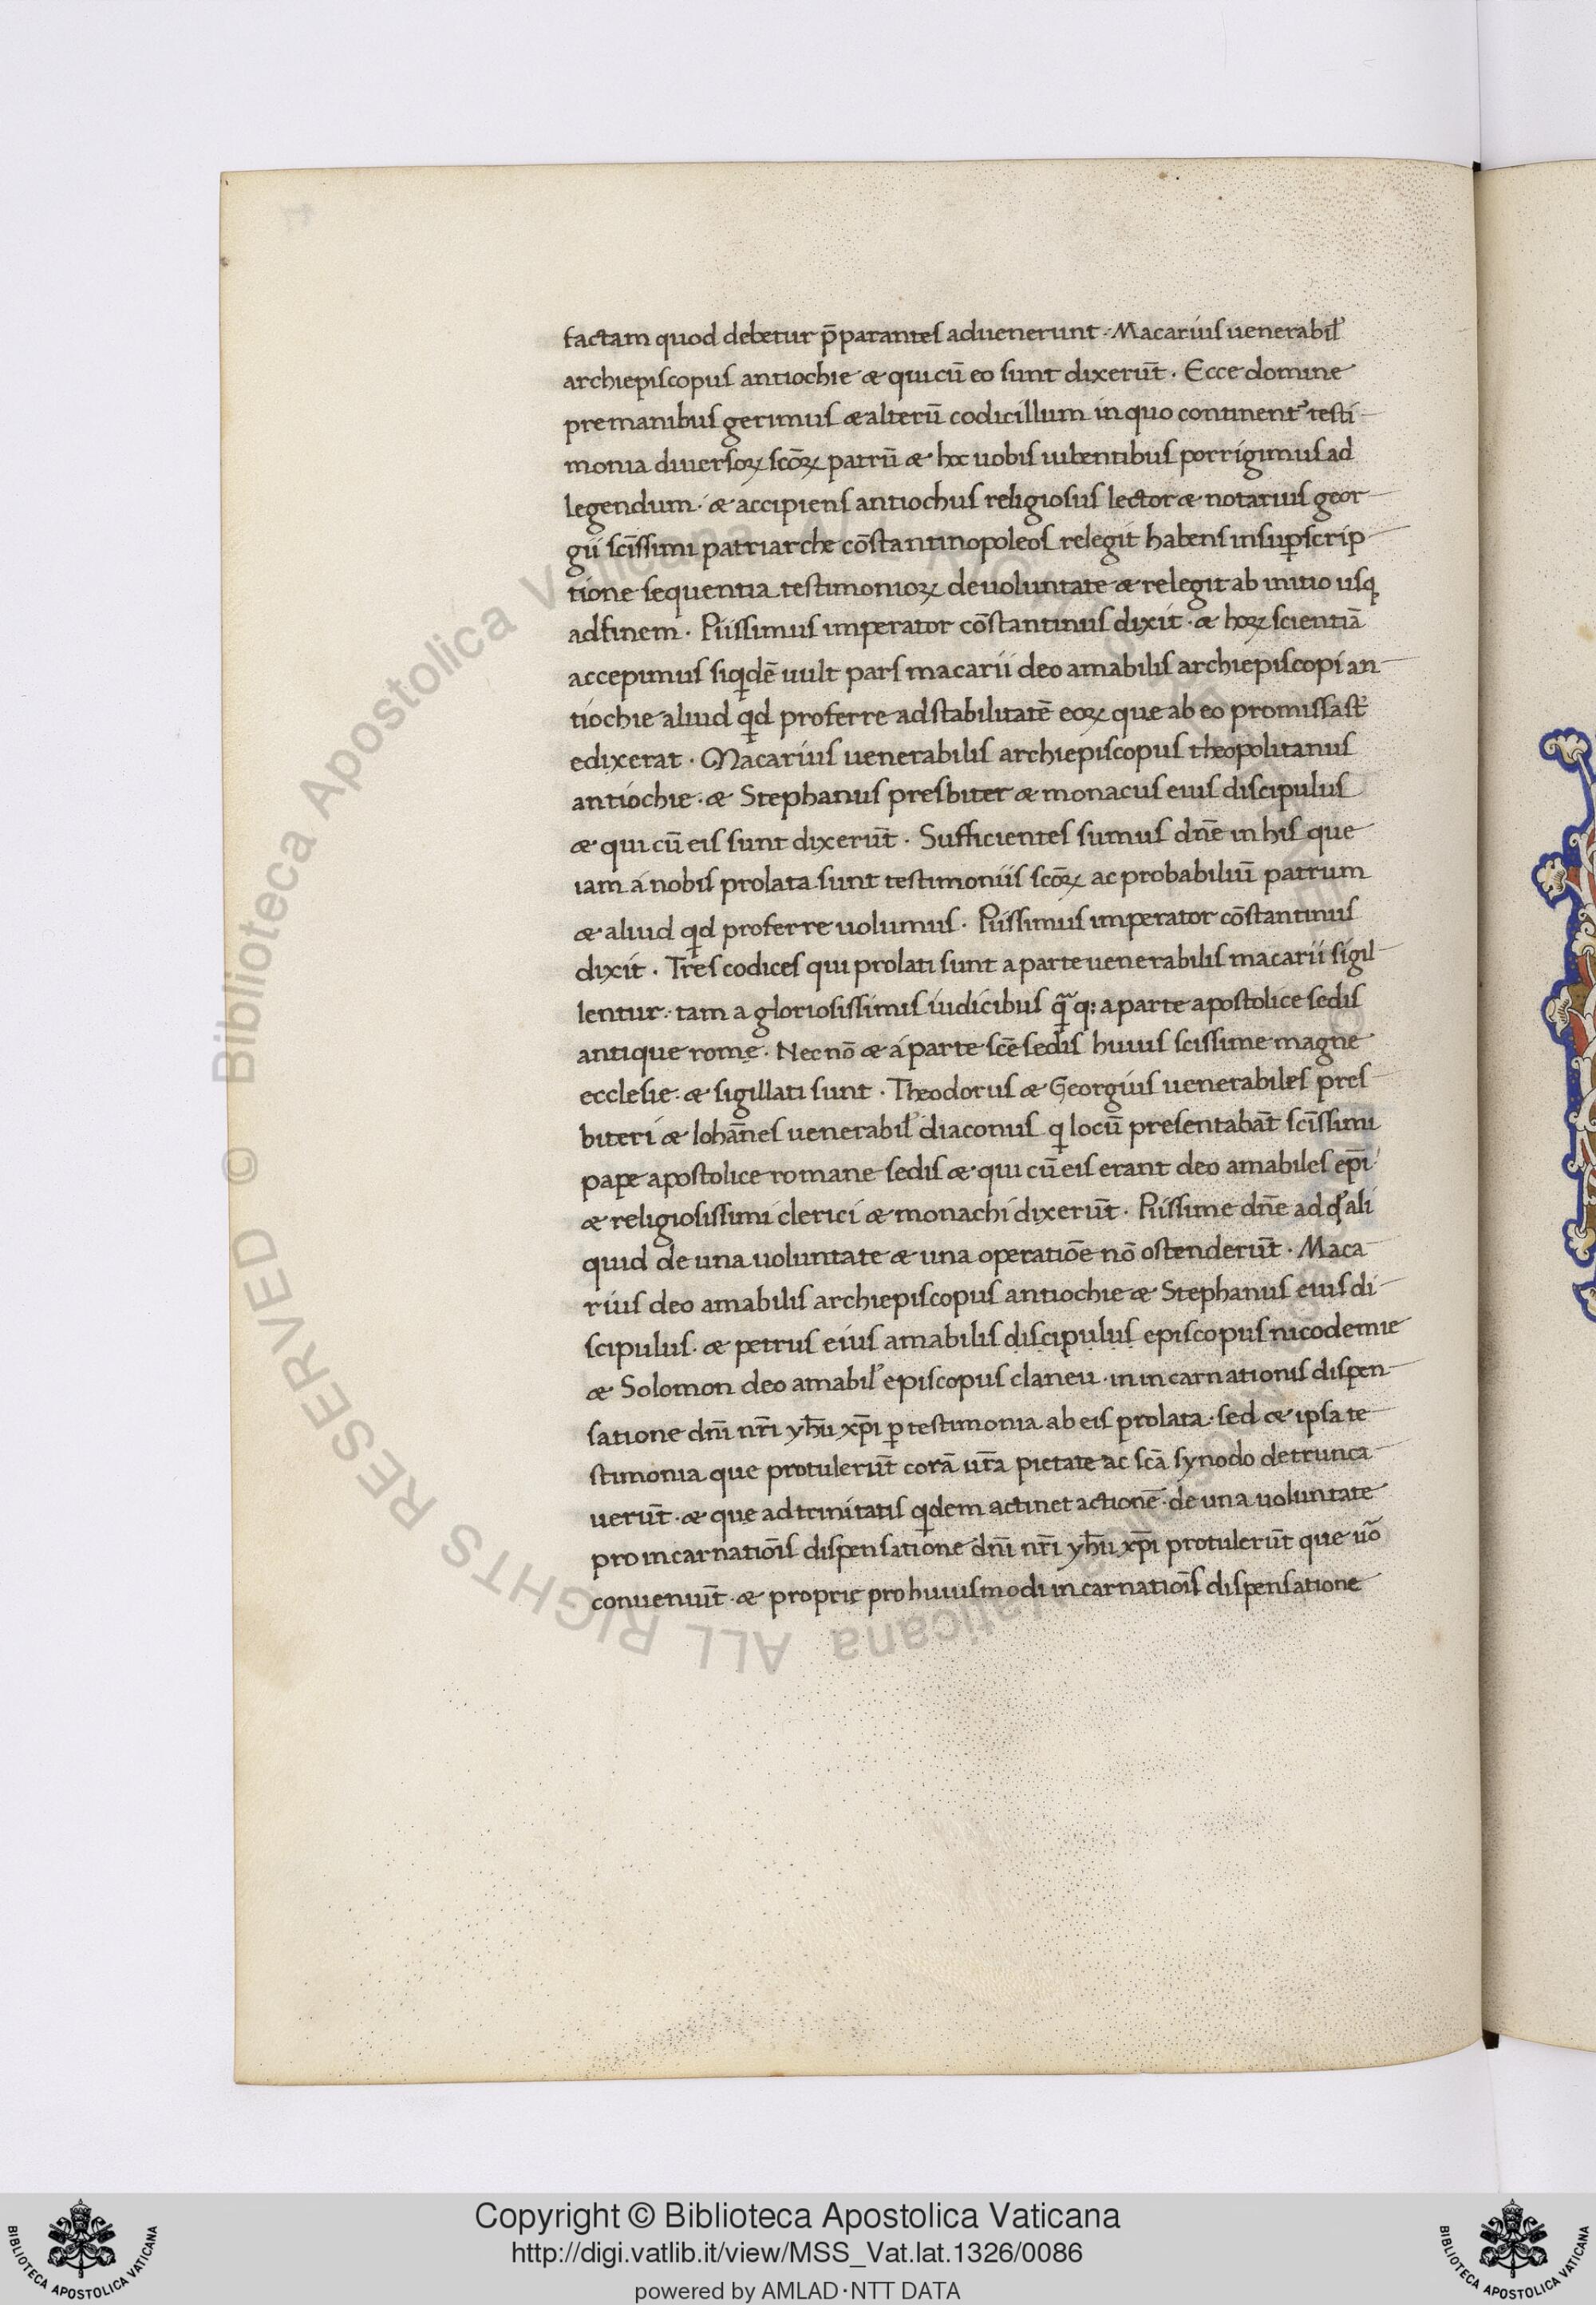 factam quod debetur p̄parantes aduenerunt · Macarius uenerabil᷒
archiepiscopus antiochie æ qui cū eo sunt dixerūt · Ecce domine
pre manibus gerimus æ alterū codicillum in quo continent᷒ testi
monia diuersoꝝ scōꝝ patrū æ hoc uobis iubentibus porrigimus ad
legendum · æ accipiens antiochus religiosus lector æ notarius geor
gii scīssimi patriarche cōstantinopoleos relegit habens in suꝑscrip
tione sequentia testimonioꝝ de uoluntate æ relegit ab initio usqꝫ
ad finem · Piissimus imperator cōstantinus dixit · æ hoꝝ scientiā
accepimus siqͥdē uult pars macarii deo amabilis archiepiscopi an
tiochie aliud qͥd proferre ad stabilitatē eoꝝ que ab eo promissa st̄
edixerat · Macarius uenerabilis archiepiscopus theopolitanus
antiochie · æ Stephanus presbiter æ monacus eius discipulus
æ qui cū eis sunt dixerūt · Sufficientes sumus dn̄e in his que
iam á nobis prolata sunt testimoniis scōꝝ ac probabiliū patrum
æ aliud qͥd proferre uolumus · Piissimus imperator cōstantinus
dixit · Tres codices qui prolati sunt a parte uenerabilis macarii sigil
lentur · tam a gloriosissimis iudicibus qͣ̄ q: a parte apostolice sedis
antique romę · Nec nō æ á parte scē sedis huius scissime magne
ecclesie · æ sigillati sunt · Theodorus æ Georgius uenerabiles pres
biteri æ Iohānes uenerabil᷒ diaconus qͥ locū presentabāt scīssimi
pape apostolice romane sedis æ qui cū eis erant deo amabiles ep̄i
æ religiosissimi clerici æ monachi dixerūt · Piissime dn̄e ad qd᷒ ali
quid de una uoluntate æ una operatiōe nō ostenderūt · Maca
rius deo amabilis archiepiscopus antiochie æ Stephanus eius di
scipulus · æ petrus eius amabilis discipulus episcopus nicodemie
æ Solomon deo amabil᷒ episcopus claneu · in incarnationis dispen
satione dn̄i nr̄i yhū xp̄i ꝑ testimonia ab eis prolata · sed æ ipsa te
stimonia que protulerūt corā ur̄a pietate ac scā synodo detrunca
uerūt · æ que ad trinitatis qͥdem actinet actionē · de una uoluntate
pro incarnatiōis dispensatione dn̄i nr̄i yhū xp̄i protulerūt que uō
conueniūt · æ proprie pro huiusmodi incarnatiōis dispensatione
Copyright © Biblioteca Apostolica Vaticana
http://digi.vatlib.it/view/MSS_Vat.lat.1326/0086
powered by AMLAD·NTT DATA
BIBLIOTECA APOSTOLICA VATICANA
BIBLIOTECA APOSTOLICA VATICANA
© Biblioteca Apostolica Vaticana ALL RIGHTS RESERVED